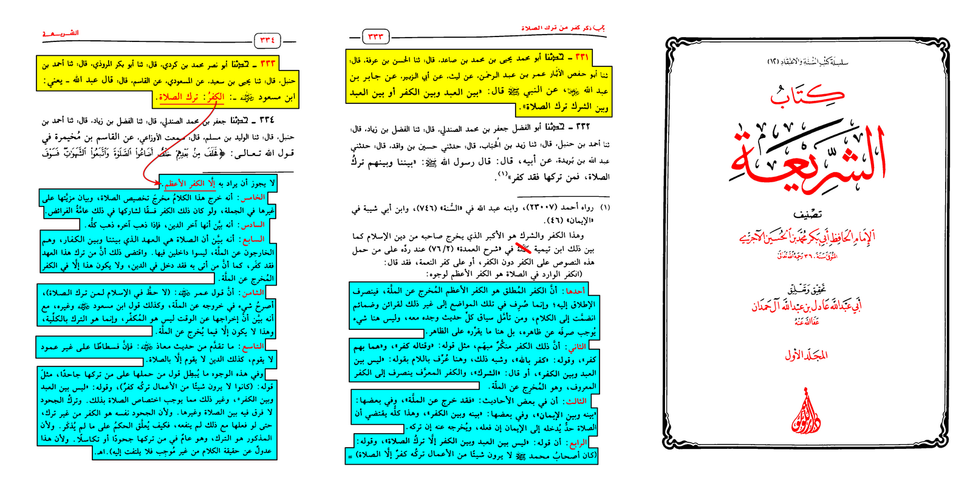 سلسلة كتب السنة والاعتقاد (١٢)
كتاب
الشريعة
تصنيف
الإمام الحافظ أبي بكر محمد بن الحسين الآجري
المتوفى سنة ٣٦٠ رحمه الله تعالى
تحقيق وتعليق
أبي عبد الله عادل بن عبد الله آل حمدان
عفا الله عنه
المجلد الأول
باب ذكر كفر من ترك الصلاة
٣٣٣
٣٣١ ـ حدثنا أبو محمد يحيى بن محمد بن صاعد، قال: ثنا الحسن بن عرفة، قال:
ثنا أبو حفص الأبار عمر بن عبد الرحمن، عن ليث، عن أبي الزبير، عن جابر بن
عبد الله ﵁، عن النبي ﷺ قال: «بين العبد وبين الكفر أو بين العبد
وبين الشرك ترك الصلاة».
٣٣٢ ـ حدثنا أبو الفضل جعفر بن محمد الصندلي، قال: ثنا الفضل بن زياد، قال:
ثنا أحمد بن حنبل، قال: ثنا زيد بن الحباب، قال: حدثني حسين بن واقد، قال: حدثني
عبد الله بن بُريدة، عن أبيه، قال: قال رسول الله ﷺ: «بيننا وبينهم تركُ
الصلاة، فمن تركها فقد كفر»(١).
(١) رواه أحمد (٢٣٠٠٧)، وابنه عبد الله في «السُّنة» (٧٤٦)، وابن أبي شيبة في
«الإيمان» (٤٦).
وهذا الكفر والشرك هو الأكبر الذي يخرج صاحبه من دين الإسلام كما
بين ذلك ابن تيمية في «شرح العمدة» (٧٦/٢) عند ردِّه على من حمل
هذه النصوص على الكفر دون الكفر، أو على كفر النعمة، فقد قال:
(الكفر الوارد في الصلاة هو الكفر الأعظم لوجوه:
أحدها: أنَّ الكفر المُطلق هو الكفر الأعظم المُخرج عن الملَّة، فينصرف
الإطلاق إليه؛ وإنما صُرف في تلك المواضع إلى غير ذلك لقرائن وضمائم
انضمَّت إلى الكلام، ومن تأمَّل سياق كلِّ حديث وجده معه، وليس هنا شيء
يُوجب صرفه عن ظاهره، بل هنا ما يقرِّره على الظاهر.
الثاني: أنَّ ذلك الكفر منكَّرٌ مبهم، مثل قوله: «وقتاله كفر»، «وهما بهم
كفر»، وقوله: «كفر بالله»، وشبه ذلك، وهنا عُرِّف باللام بقوله: «ليس بين
العبد وبين الكفر»، أو قال: «الشرك»، والكفر المعرَّف ينصرف إلى الكفر
المعروف، وهو المُخرج عن الملَّة.
الثالث: أن في بعض الأحاديث: «فقد خرج عن الملَّة»، وفي بعضها:
«بينه وبين الإيمان»، وفي بعضها: «بينه وبين الكفر»، وهذا كلُّه يقتضي أن
الصلاة حدٌّ يُدخله إلى الإيمان إن فعله، ويُخرجه عنه إن تركه.
الرابع: أن قوله: «ليس بين العبد وبين الكفر إلَّا تركُ الصلاة»، وقوله:
(كان أصحابُ محمد ﷺ لا يرون شيئًا من الأعمال تركُه كفرٌ إلَّا الصلاة) =
الشريعة
٣٣٤
٣٣٣ ـ حدثنا أبو نصر محمد بن كردي، قال: ثنا أبو بكر المروذي، قال: ثنا أحمد بن
حنبل، قال: ثنا يحيى بن سعيد، عن المسعودي، عن القاسم، قال: قال عبد الله ـ يعني:
ابن مسعود ﵁ ـ: الكفرُ: ترك الصلاة.
٣٣٤ ـ حدثنا جعفر بن محمد الصندلي، قال: ثنا الفضل بن زياد، قال: ثنا أحمد بن
حنبل، قال: ثنا الوليد بن مسلم، قال: سمعت الأوزاعي، عن القاسم بن مُخيمرة في
قول الله تعالى: ﴿فَخَلَفَ مِنْ بَعْدِهِمْ خَلْفٌ أَضَاعُوا الصَّلَاةَ وَاتَّبَعُوا الشَّهَوَاتِ فَسَوْفَ
لا يجوز أن يراد به إلَّا الكفر الأعظم.
الخامس: أنه خرج هذا الكلامُ مخرج تخصيص الصلاة، وبيان مزيَّتها على
غيرها في الجملة، ولو كان ذلك الكفر فسقًا لشاركها في ذلك عامَّةُ الفرائض.
السادس: أنه بيَّن أنها آخر الدين، فإذا ذهب آخره ذهب كلُّه.
السابع: أنه بيَّن أن الصلاة هي العهد الذي بيننا وبين الكفار، وهم
الخارجون عن الملَّة، ليسوا داخلين فيها. واقتضى ذلك أنَّ من ترك هذا العهد
فقد كفر، كما أنَّ من أتى به فقد دخل في الدين، ولا يكون هذا إلَّا في الكفر
المُخرج عن الملَّة.
الثامن: أنَّ قول عمر ﵁: (لا حظَّ في الإسلام لمن ترك الصلاة)،
أصرحُ شيء في خروجه عن الملَّة، وكذلك قول ابن مسعود ﵁ وغيره، مع
أنه بيَّن أنَّ إخراجها عن الوقت ليس هو المُكفِّر، وإنما هو الترك بالكلِّية،
وهذا لا يكون إلَّا فيما يُخرج عن الملَّة.
التاسع: ما تقدَّم من حديث معاذ ﵁: فإنَّ فسطاطًا على غير عمود
لا يقوم، كذلك الدين لا يقوم إلَّا بالصلاة.
وفي هذه الوجوه ما يُبطل قول من حملها على من تركها جاحدًا، مثلُ
قوله: (كانوا لا يرون شيئًا من الأعمال تركُه كفرٌ)، وقوله: «ليس بين العبد
وبين الكفر»، وغير ذلك مما يوجب اختصاص الصلاة بذلك. وتركُ الجحود
لا فرق فيه بين الصلاة وغيرها. ولأن الجحود نفسه هو الكفر من غير ترك،
حتى لو فعلها مع ذلك لم ينفعه، فكيف يُعلَّق الحكمُ على ما لم يُذْكر. ولأن
المذكور هو الترك، وهو عامٌّ في من تركها جحودًا أو تكاسلًا. ولأن هذا
عدولٌ عن حقيقة الكلام من غير مُوجِب فلا يلتفت إليه).اهـ.